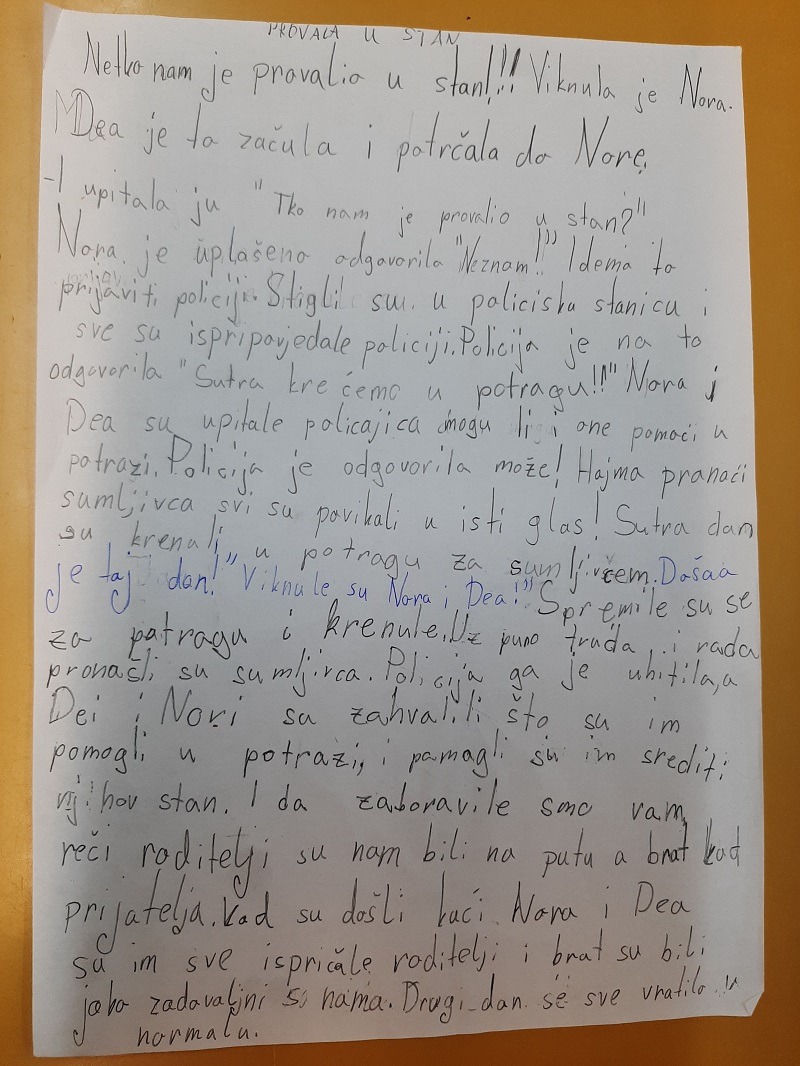 PROVALA U STAN
Netko nam je provalio u stan!!! Viknula je Nora.
Dea je to začula i potrčala do Nore.
-I upitala ju "Tko nam je provalio u stan?"
Nora je uplašeno odgovorila "Neznam!!" Idemo to
prijaviti policiji. Stigli su u policisku stanicu i
sve su ispripovjedale policiji. Policija je na to
odgovorila "Sutra krećemo u potragu!!" Nora i
Dea su upitale policajica mogu li i one pomoći u
potrazi. Policija je odgovorila može! Hajmo pronaći
sumljivca svi su povikali u isti glas! Sutra dan
su krenuli u potragu za sumljivcem. Došao
je taj dan!" Viknule su Nora i Dea!" Spremile su se
za potragu i krenule. Uz puno truda i rada
pronašli su sumljivca. Policija ga je uhitila, a
Dei i Nori su zahvalili što su im
pomogli u potrazi, i pomogli su im srediti
njihov stan. I da zaboravile smo vam
reči roditelji su nam bili na putu a brat kod
prijatelja. Kad su došli kući Nora i Dea
su im sve ispričale roditelji i brat su bili
jako zadovoljni s nama. Drugi dan se sve vratilo u
normalu.